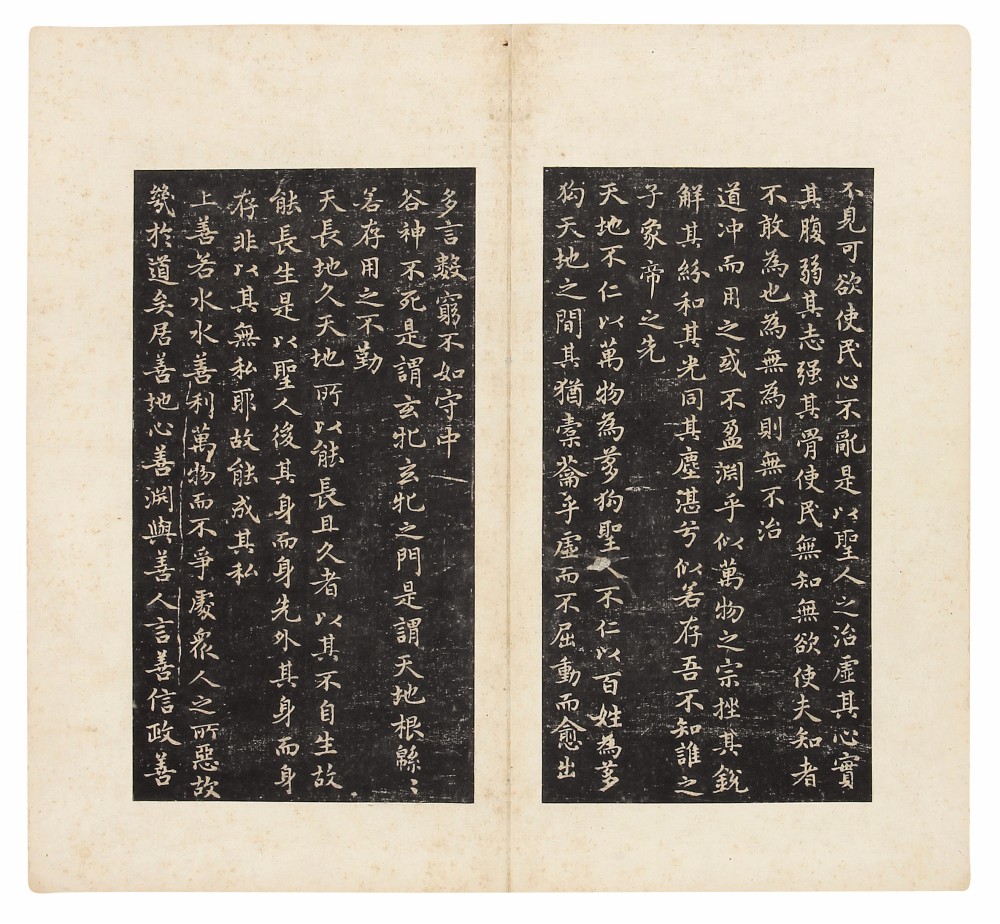 不見可欲使民心不亂是以聖人之治虛其心實
其腹弱其志强其骨使民無知無欲使夫知者
不敢為也為無為則無不治
道冲而用之或不盈淵乎似萬物之宗挫其銳
解其紛和其光同其塵湛兮似若存吾不知誰之
子象帝之先
天地不仁以萬物為芻狗聖人不仁以百姓為芻
狗天地之間其猶橐籥乎虛而不屈動而愈出
多言數窮不如守中
谷神不死是謂玄牝玄牝之門是謂天地根緜〻
若存用之不勤
天長地久天地所以能長且久者以其不自生故
能長生是以聖人後其身而身先外其身而身
存非以其無私耶故能成其私
上善若水水善利萬物而不爭處衆人之所惡故
幾於道矣居善地心善淵與善人言善信政善